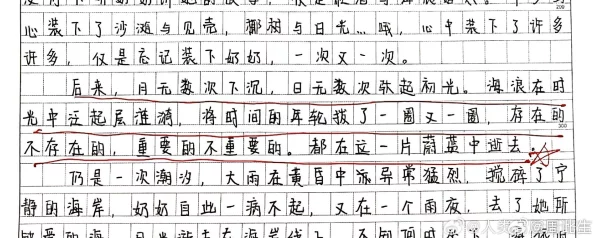 心装下了沙滩与贝壳,椰树与日光…哦,心中装下了许多
许多,仅是忘记装下奶奶,一次又一次。
后来,月无数次下沉,日无数次弥起初光。海浪在时
光中泛起层涟漪,将时间的年轮拨了一圈又一圈,存在的
300
不存在的,重要的不重要的。都在这一片蔚蓝中逝去。
仍是一次潮汐,大雨在黄昏中添异常猛烈,搅碎了宁
静的海岸,奶奶自此一病不起,又在一个雨夜,去了她所